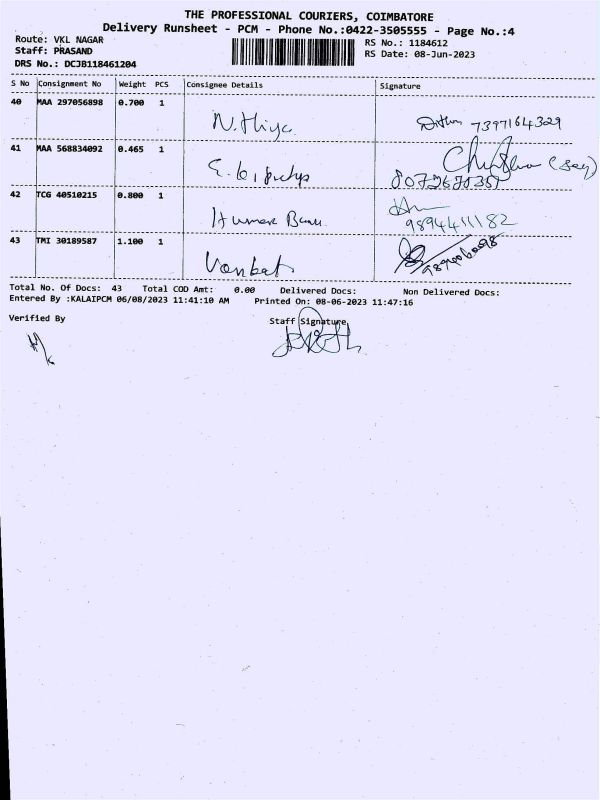 THE PROFESSIONAL COURIERS, COIMBATORE
Delivery Runsheet - PCM - Phone No.:0422-3505555 - Page No.:4
Route: VKL NAGAR RS No.: 1184612
Staff: PRASAND RS Date: 08-Jun-2023
DRS No.: DCJB118461204
S No Consignment No Weight PCS Consignee Details Signature
40 MAA 297056898 0.700 1
N. Thiya 7397164329
41 MAA 568834092 0.465 1
42 TCG 40510215 0.800 1
9894411182
43 TMI 30189587 1.100 1
Venkat
Total No. Of Docs: 43 Total COD Amt: 0.00 Delivered Docs: Non Delivered Docs:
Entered By :KALAIPCM 06/08/2023 11:41:10 AM Printed On: 08-06-2023 11:47:16
Verified By Staff Signature